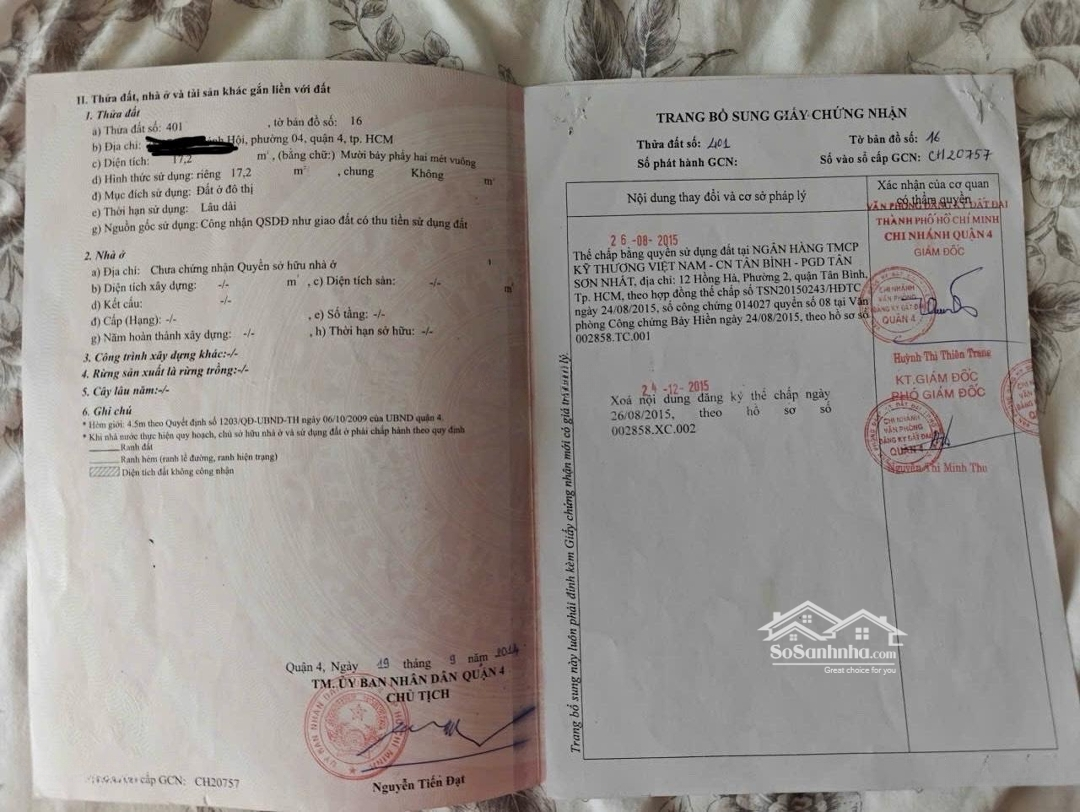 II. Thửa đất, nhà ở và tài sản khác gắn liền với đất
1. Thửa đất
a) Thửa đất số: 401 , tờ bản đồ số: 16
b) Địa chỉ: Hội, phường 04, quận 4, tp. HCM
c) Diện tích: 17,2 m², (bằng chữ:) Mười bảy phẩy hai mét vuông
d) Hình thức sử dụng: riêng 17,2 m² , chung Không m²
đ) Mục đích sử dụng: Đất ở đô thị
e) Thời hạn sử dụng: Lâu dài
g) Nguồn gốc sử dụng: Công nhận QSDĐ như giao đất có thu tiền sử dụng đất
2. Nhà ở
a) Địa chỉ: Chưa chứng nhận Quyền sở hữu nhà ở
b) Diện tích xây dựng: -/- m² , c) Diện tích sàn: -/- m²
d) Kết cấu: -/-
đ) Cấp (Hạng): -/- , e) Số tầng: -/-
g) Năm hoàn thành xây dựng: -/- , h) Thời hạn sở hữu: -/-
3. Công trình xây dựng khác:-/-
4. Rừng sản xuất là rừng trồng:-/-
5. Cây lâu năm:-/-
6. Ghi chú
* Hẻm giới: 4.5m theo Quyết định số 1203/QĐ-UBND-TH ngày 06/10/2009 của UBND quận 4.
* Khi nhà nước thực hiện quy hoạch, chủ sở hữu nhà ở và sử dụng đất ở phải chấp hành theo quy định
Ranh đất
Ranh hẻm (ranh lề đường, ranh hiện trạng)
Diện tích đất không công nhận
Quận 4, Ngày 19 tháng 9 năm 2014
TM. ỦY BAN NHÂN DÂN QUẬN 4
CHỦ TỊCH
Nguyễn Tiến Đạt
cấp GCN: CH20757
TRANG BỔ SUNG GIẤY CHỨNG NHẬN
Thửa đất số: 401 Tờ bản đồ số: 16
Số phát hành GCN: Số vào sổ cấp GCN: CH20757
Nội dung thay đổi và cơ sở pháp lý
Xác nhận của cơ quan
có thẩm quyền
26-08-2015
Thế chấp bằng quyền sử dụng đất tại NGÂN HÀNG TMCP
KỸ THƯƠNG VIỆT NAM - CN TÂN BÌNH - PGD TÂN
SƠN NHẤT, địa chỉ: 12 Hồng Hà, Phường 2, quận Tân Bình,
Tp. HCM, theo hợp đồng thế chấp số TSN20150243/HĐTC
ngày 24/08/2015, số công chứng 014027 quyển số 08 tại Văn
phòng Công chứng Bảy Hiền ngày 24/08/2015, theo hồ sơ số
002858.TC.001
24-12-2015
Xoá nội dung đăng ký thế chấp ngày
26/08/2015, theo hồ sơ số
002858.XC.002
VĂN PHÒNG ĐĂNG KÝ ĐẤT ĐAI
THÀNH PHỐ HỒ CHÍ MINH
CHI NHÁNH QUẬN 4
GIÁM ĐỐC
CHI NHÁNH
VĂN PHÒNG
ĐĂNG KÝ ĐẤT ĐAI
QUẬN 4
Huỳnh Thị Thiên Trang
KT.GIÁM ĐỐC
PHÓ GIÁM ĐỐC
CHI NHÁNH
VĂN PHÒNG
ĐĂNG KÝ ĐẤT ĐAI
QUẬN 4
Nguyễn Thị Minh Thu
Trang bổ sung này luôn phải đính kèm Giấy chứng nhận mới có giá trị pháp lý.
SoSanhnha.com
Great choice for you